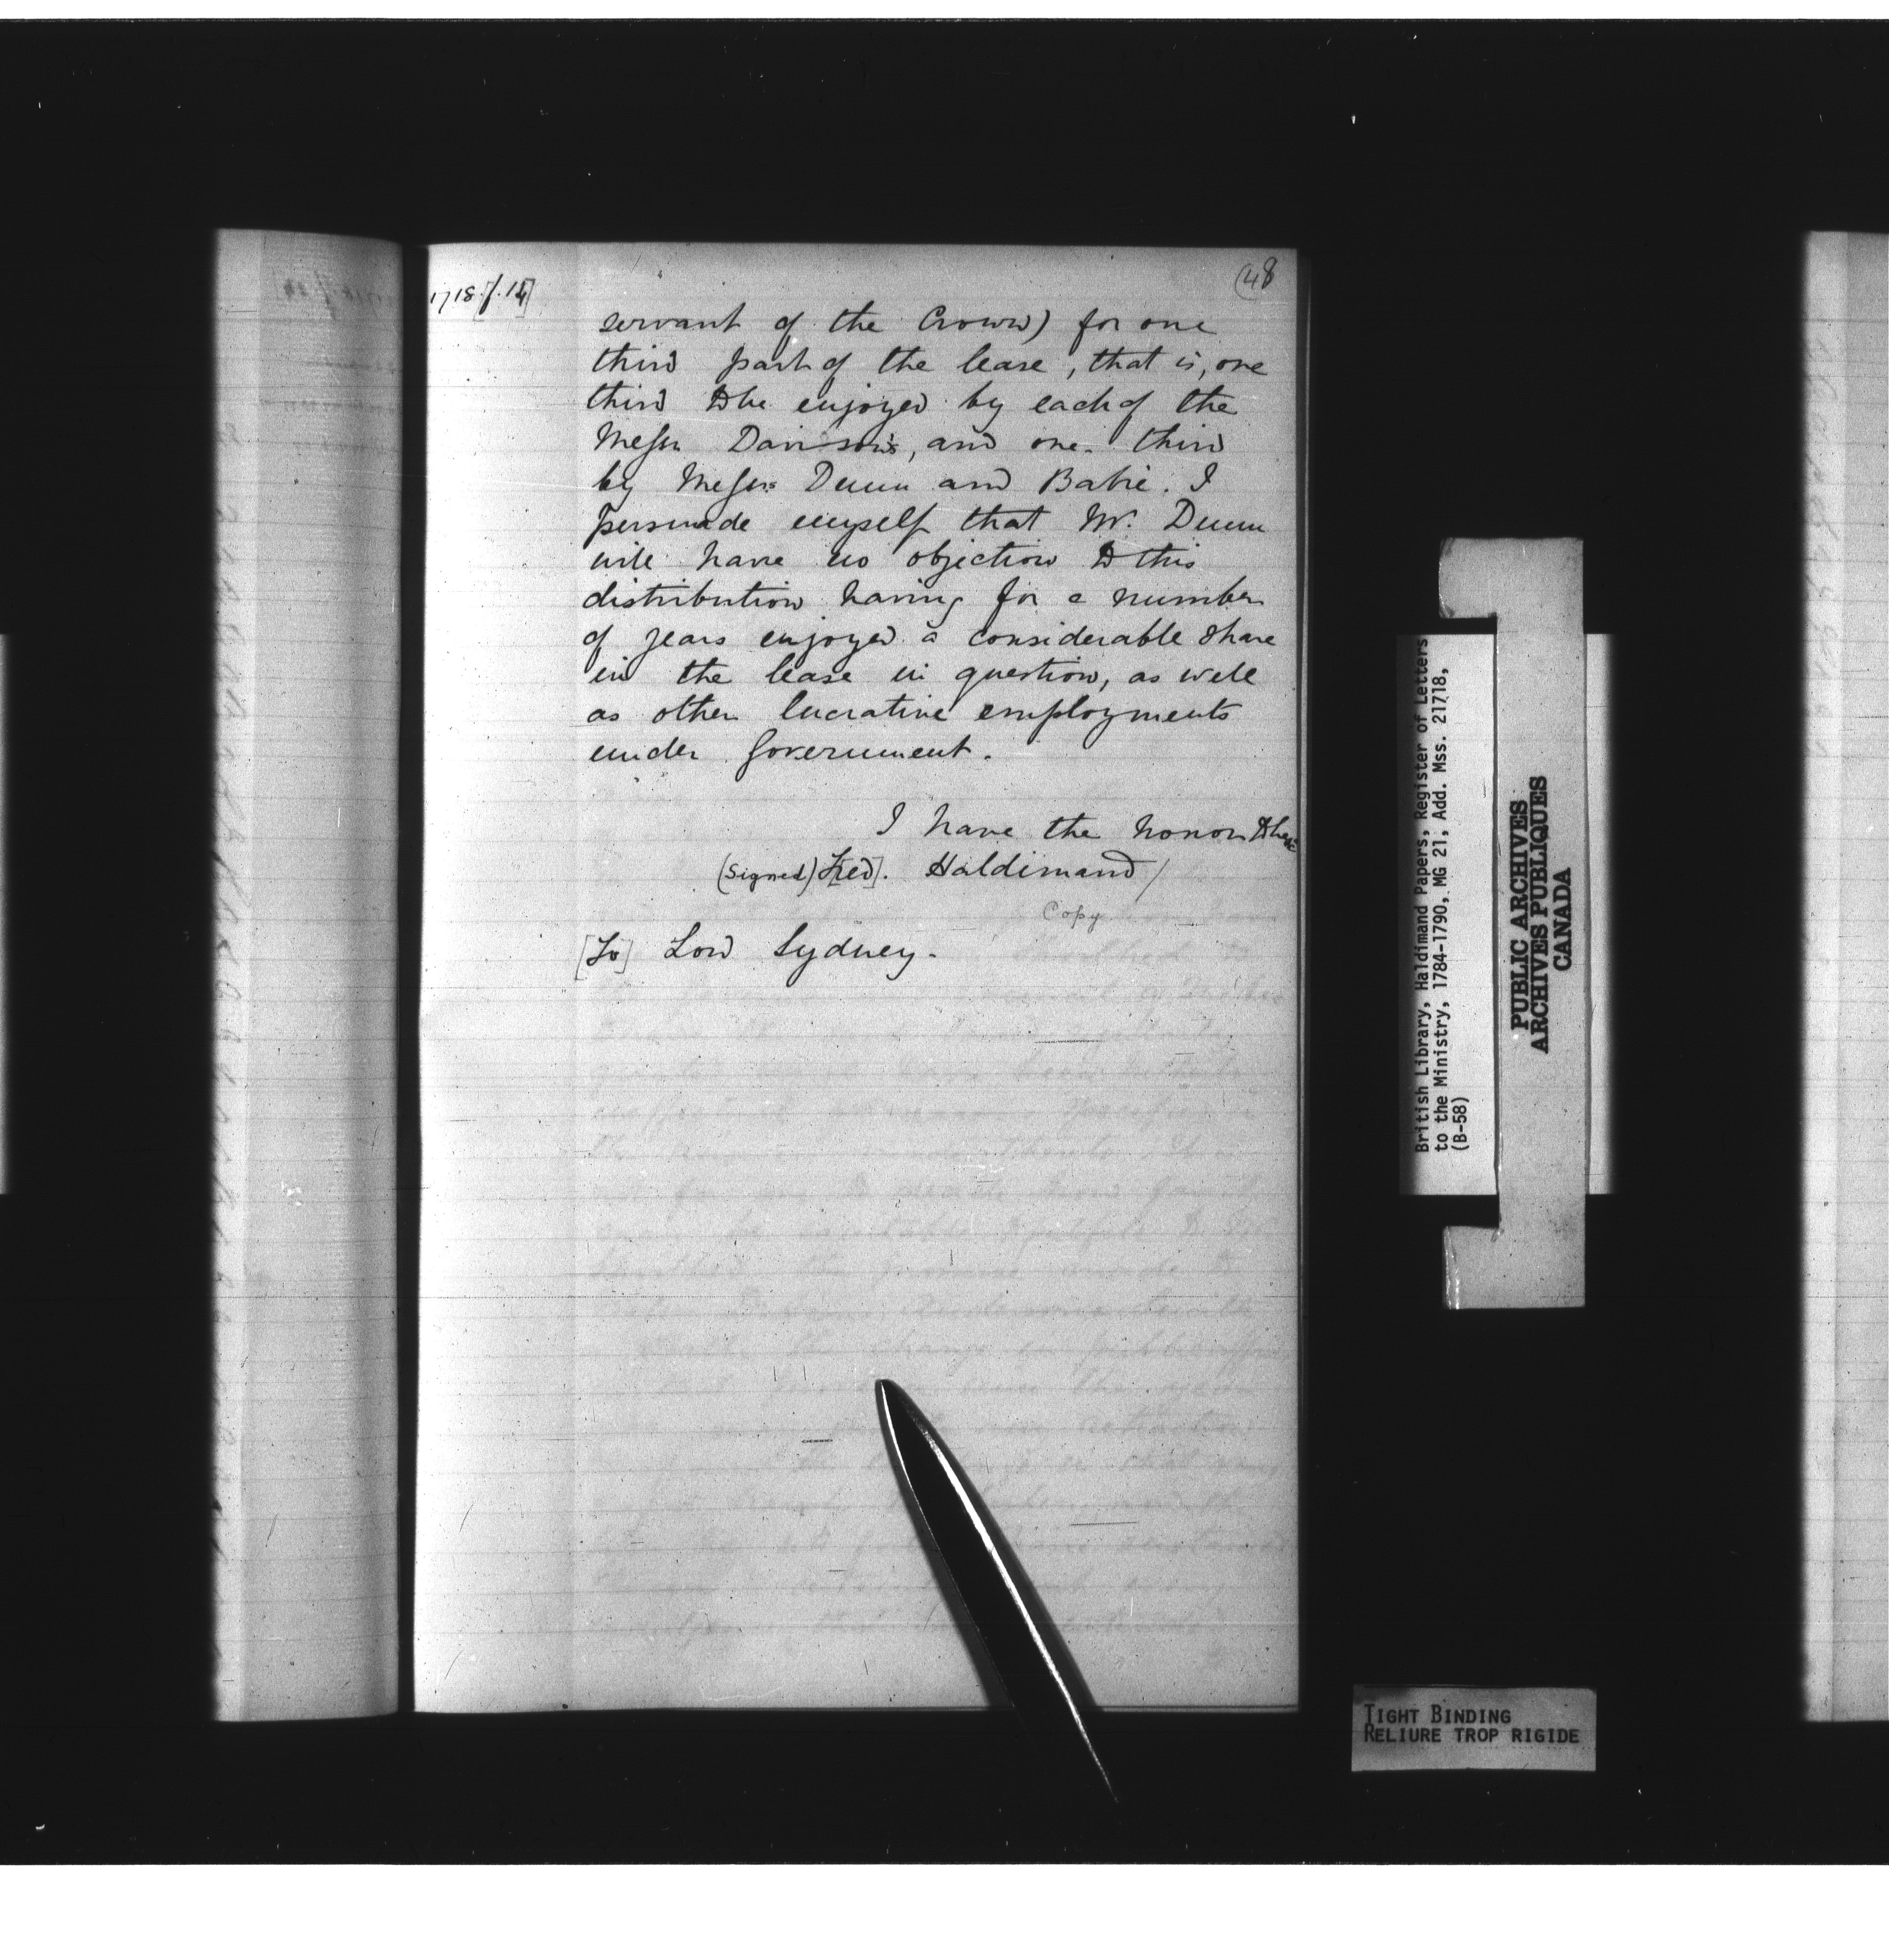 48
1718 [f. 14]
servant of the Crown) for one
third part of the lease, that is, one
third to be enjoyed by each of the
Messrs Davison's, and one third
by Messrs Dunn and Babie. I
persuade myself that Mr. Dunn
will have no objection to this
distribution having for a number
of years enjoyed a considerable share
in the lease in question, as well
as other lucrative employments
under Government.
I have the honor to be &c
(signed) F[red]. Haldimand/
Copy
[To] Lord Sydney.
British Library, Haldimand Papers, Register of Letters
to the Ministry, 1784-1790, MG 21, Add. Mss. 21718,
(B-58)
PUBLIC ARCHIVES
ARCHIVES PUBLIQUES
CANADA
TIGHT BINDING
RELIURE TROP RIGIDE